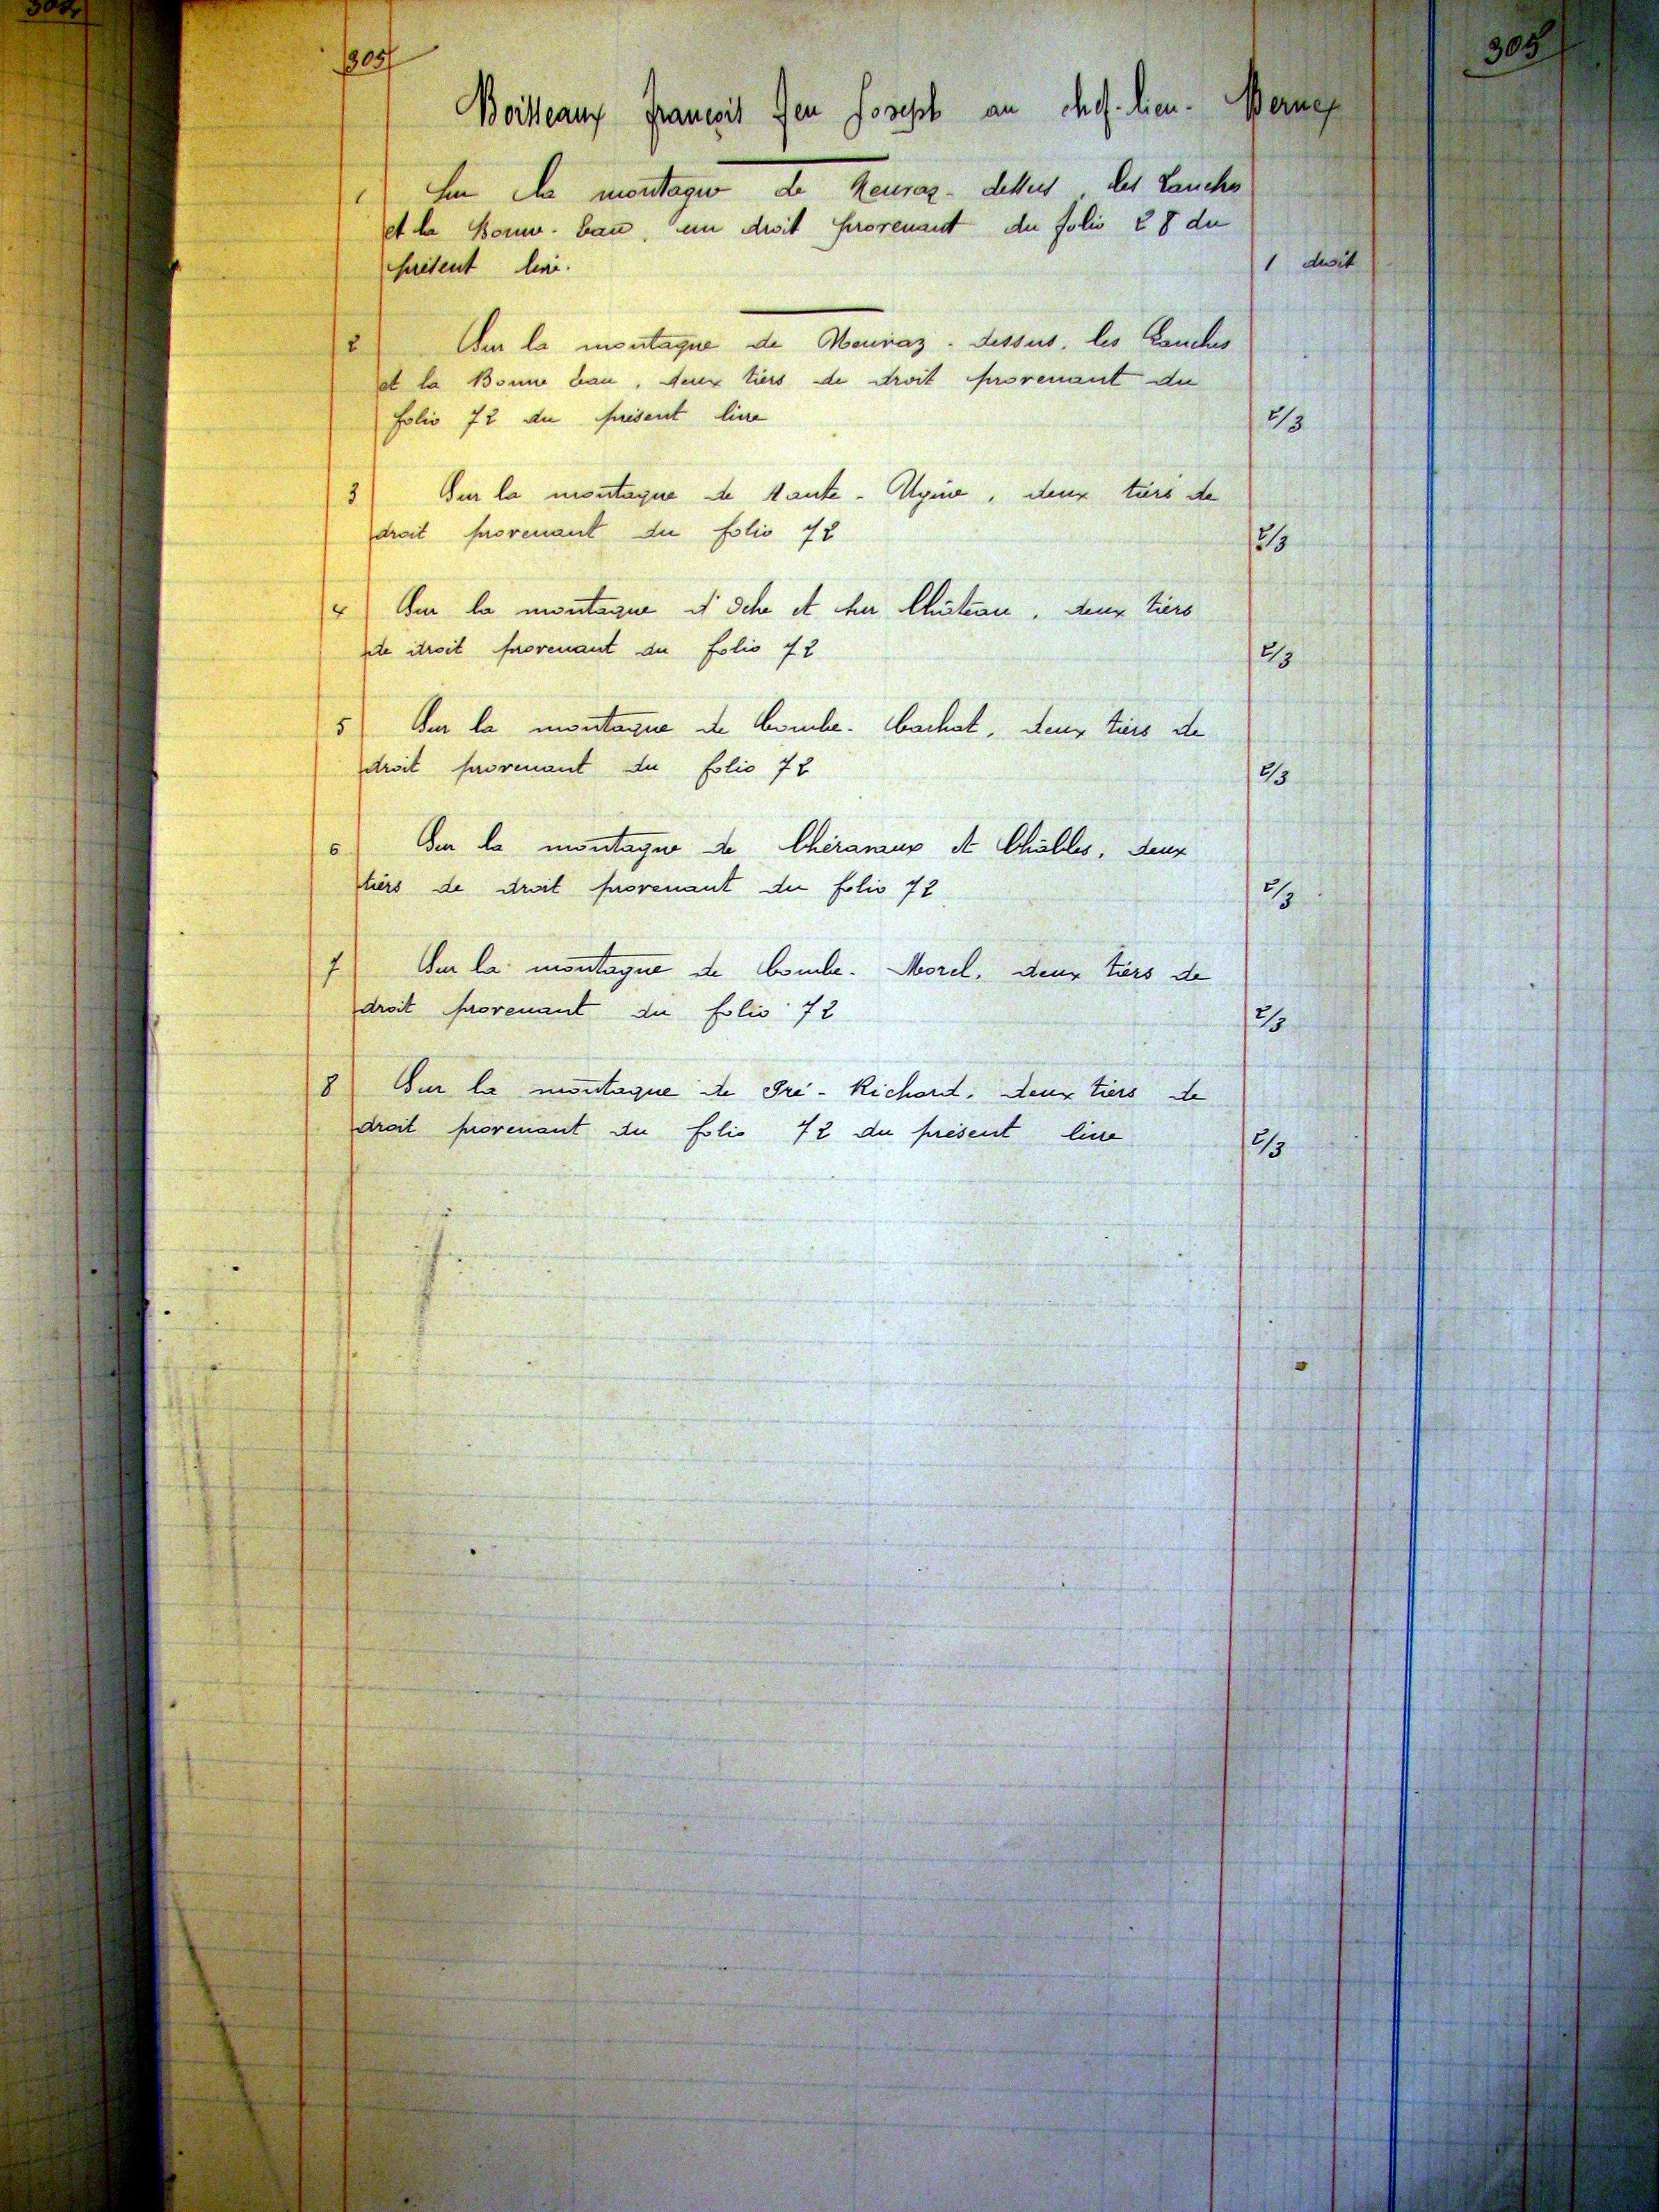 304
305
305
Boisseaux françois feu Joseph au chef-lieu. Bernex
1 Sur la montagne de Neuvaz-dessus, les Lanches
et la Bonne-Eau, un droit provenant du folio 28 du
présent livre. 1 droit
2 Sur la montagne de Neuvaz-dessus, les Lanches
et la Bonne Eau, deux tiers de droit provenant du
folio 72 du présent livre 2/3
3 Sur la montagne de Haute-Ugine, deux tiers de
droit provenant du folio 72 2/3
4 Sur la montagne d'Oche et Château, deux tiers
de droit provenant du folio 72 2/3
5 Sur la montagne de Combe-Cachat, deux tiers de
droit provenant du folio 72 2/3
6 Sur la montagne de et Châlles, deux
tiers de droit provenant du folio 72 2/3
7 Sur la montagne de Combe-Morel, deux tiers de
droit provenant du folio 72 2/3
8 Sur la montagne de Pré-Richard, deux tiers de
droit provenant du folio 72 du présent livre 2/3